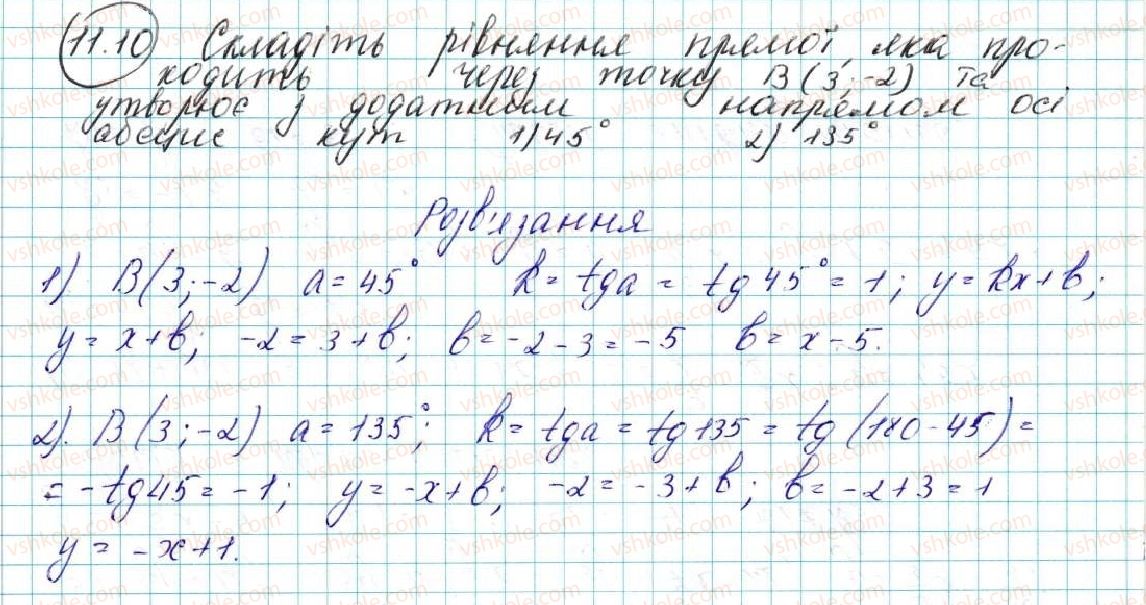 11.10 Складіть рівняння прямої, яка про-
ходить через точку B(3;-2) та
утворює з додатним напрямом осі
абсцис кут 1) 45° 2) 135°
Розв'язання
1) B(3;-2) a = 45° k = tga = tg45° = 1; y = kx+b;
y = x+b; -2 = 3+b; b = -2-3 = -5 b = x-5.
2). B(3;-2) a = 135°; k = tga = tg135 = tg(180-45) =
= -tg45 = -1; y = -x+b; -2 = -3+b; b = -2+3 = 1
y = -x+1.